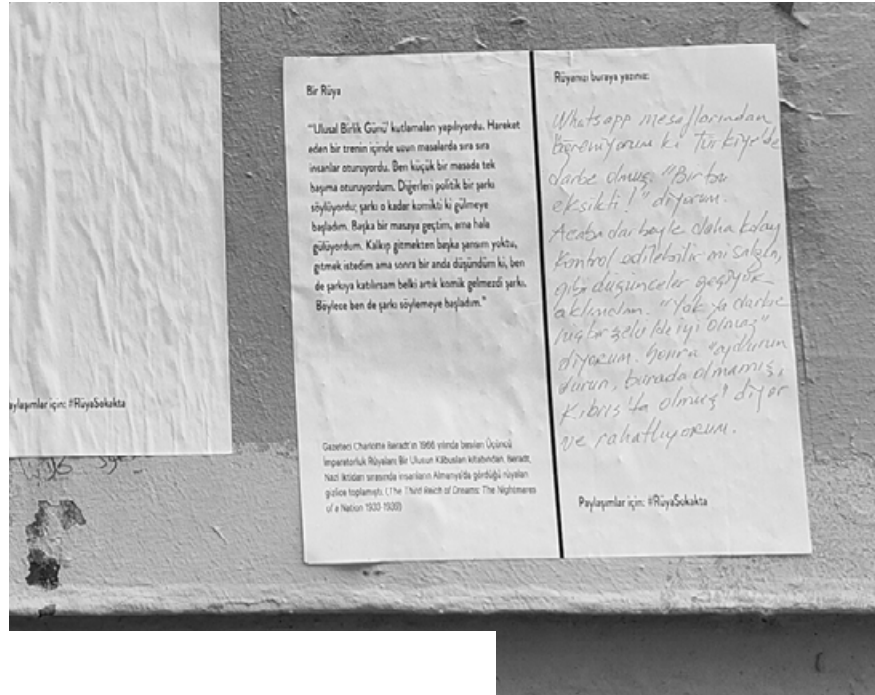 Paylaşımlar için: #RüyaSokakta
Bir Rüya
"'Ulusal Birlik Günü' kutlamaları yapılıyordu. Hareket
eden bir trenin içinde uzun masalarda sıra sıra
insanlar oturuyordu. Ben küçük bir masada tek
başıma oturuyordum. Diğerleri politik bir şarkı
söylüyordu; şarkı o kadar komikti ki gülmeye
başladım. Başka bir masaya geçtim, ama hala
gülüyordum. Kalkıp gitmekten başka şansım yoktu,
gitmek istedim ama sonra bir anda düşündüm ki, ben
de şarkıya katılırsam belki artık komik gelmezdi şarkı.
Böylece ben de şarkı söylemeye başladım."
Gazeteci Charlotte Beradt'ın 1966 yılında basılan Üçüncü
İmparatorluk Rüyaları: Bir Ulusun Kâbusları kitabından. Beradt,
Nazi iktidarı sırasında insanların Almanya'da gördüğü rüyaları
gizlice toplamıştı. (The Third Reich of Dreams: The Nightmares
of a Nation 1933-1939)
Rüyanızı buraya yazınız:
Whatsapp mesajlarından
öğreniyorum ki Türkiye'de
darbe olmuş. "Bir bu
eksikti!" diyorum.
Acaba darbeyle daha kolay
kontrol edilebilir mi salgın,
gibi düşünceler geçiyor
aklımdan. "Yok ya darbe
hiçbir şekilde iyi olmaz"
diyorum. Sonra
durun, burada olmamış,
Kıbrıs'ta olmuş" diyor
ve rahatlıyorum.
Paylaşımlar için: #RüyaSokakta